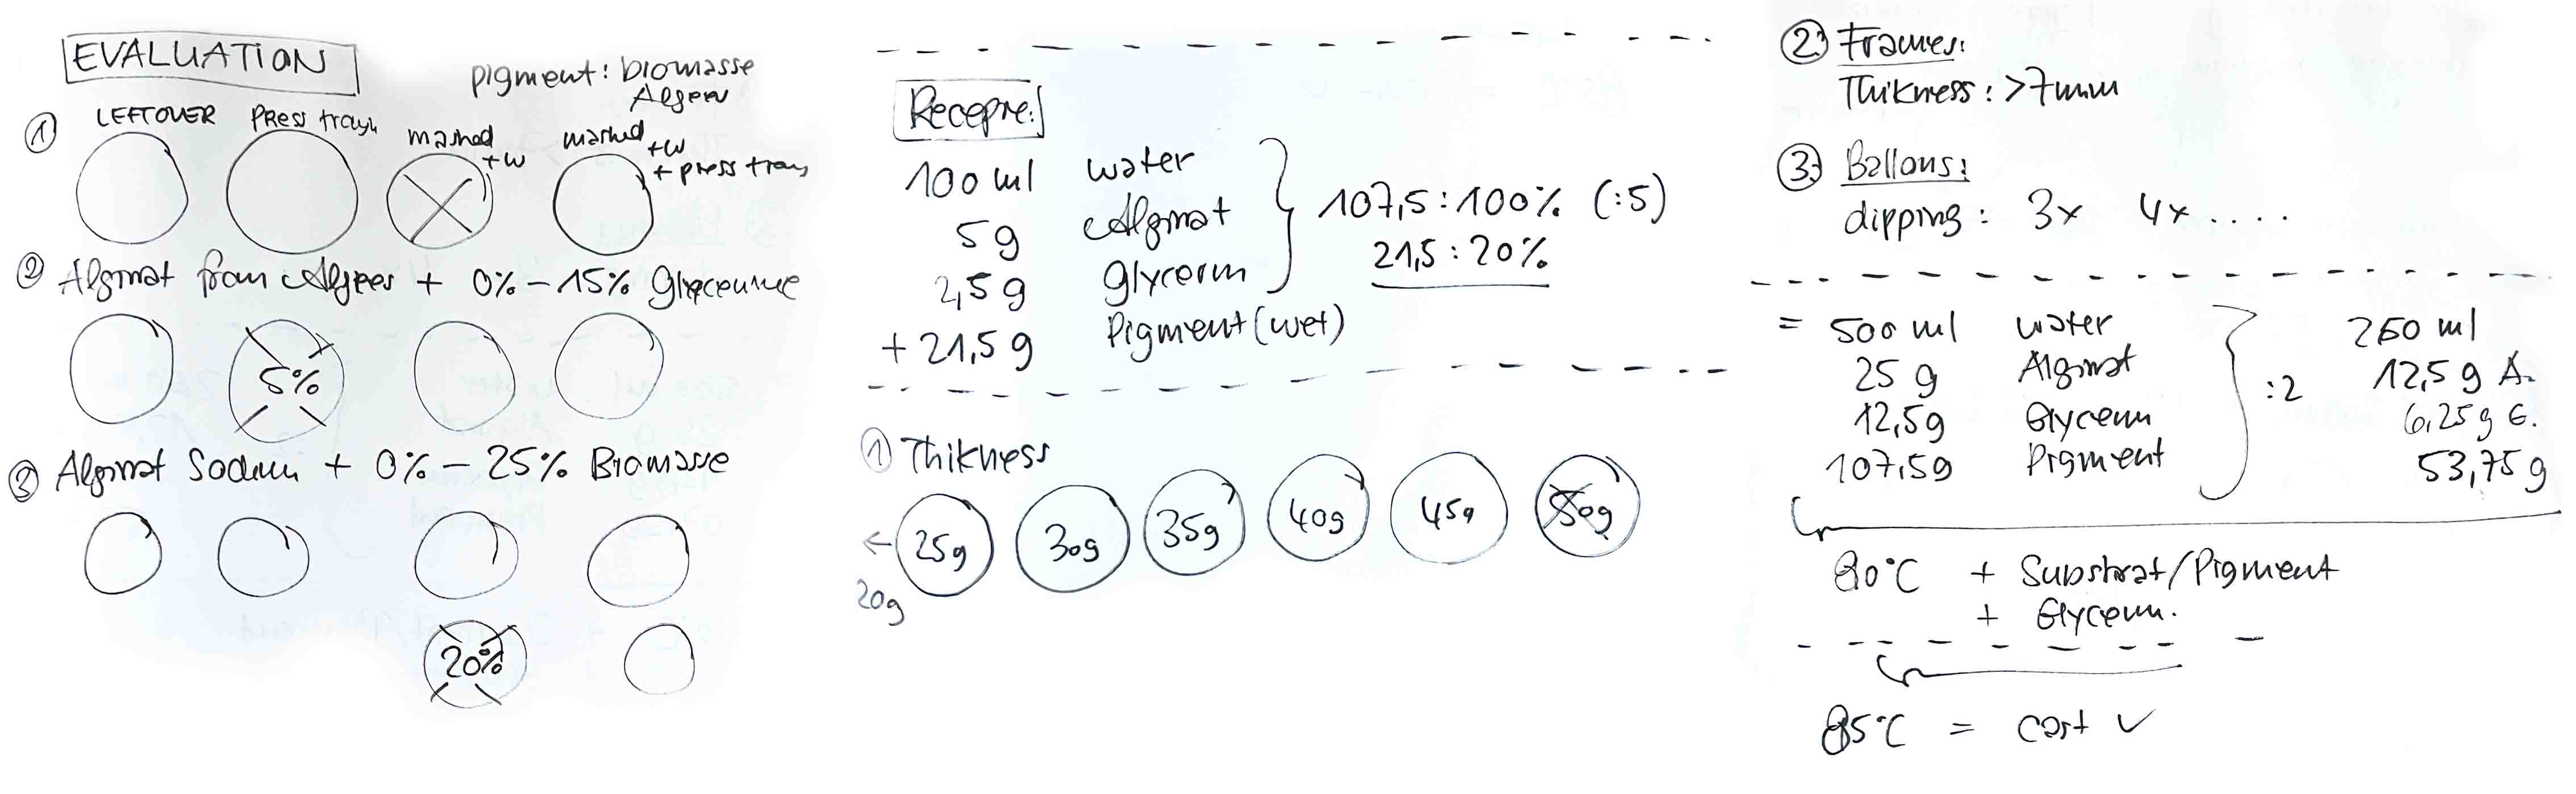 EVALUATION
pigment: biomasse
Algen
① LEFTOVER Press trash mashed +w mashed +w + press trash
② Alginat from Algees + 0% – 15% Glyceurine
5%
③ Alginat Sodium + 0% – 25% Biomasse
20%
Recepre:
100 ml water
5 g Alginat
2,5 g Glycerin
+ 21,5 g Pigment (wet)
107,5 : 100% (:5)
21,5 : 20%
① Thikness
← 25g 30g 35g 40g 45g 50g
20g
② Frames:
Thikness: >7mm
③ Ballons:
dipping: 3x 4x ....
= 500 ml water
25 g Alginat
12,5g Glycerin
107,5g Pigment
:2
250 ml
12,5 g A.
6,25 g G.
53,75 g
80°C + Substrat/Pigment
+ Glycerin.
85°C = cast ✓